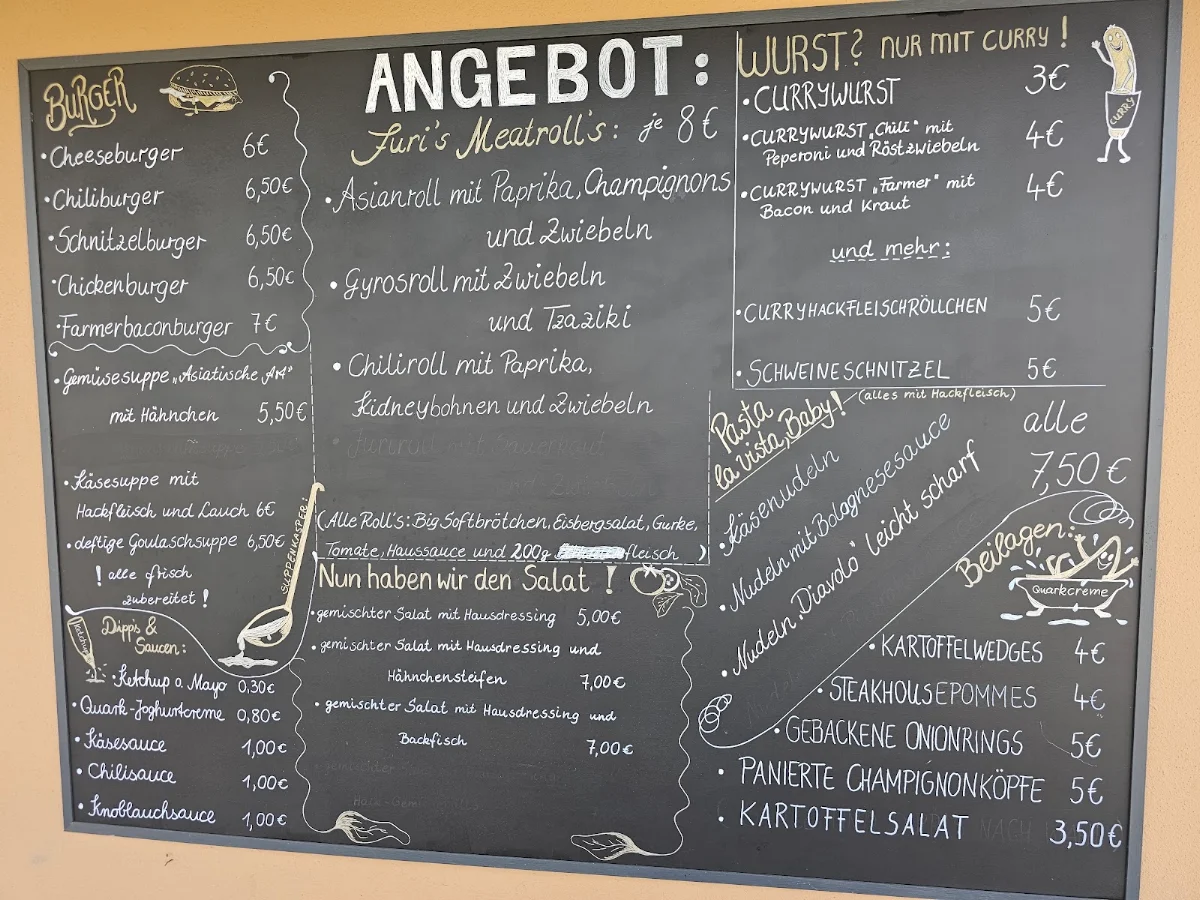 BURGER
• Cheeseburger 6€
• Chiliburger 6,50€
• Schnitzelburger 6,50€
• Chickenburger 6,50€
• Farmerbaconburger 7€
• Gemüsesuppe „Asiatische Art"
mit Hähnchen 5,50€
• Käsesuppe mit
Hackfleisch und Lauch 6€
• deftige Goulaschsuppe 6,50€
! alle frisch
zubereitet !
SUPPENKASPER:
Ketchup
Dipp's &
Saucen:
• Ketchup o. Mayo 0,30€
• Quark-Joghurtcreme 0,80€
• Käsesauce 1,00€
• Chilisauce 1,00€
• Knoblauchsauce 1,00€
ANGEBOT:
Juri's Meatroll's: je 8€
• Asianroll mit Paprika, Champignons
und Zwiebeln
• Gyrosroll mit Zwiebeln
und Tzaziki
• Chiliroll mit Paprika,
Kidneybohnen und Zwiebeln
(Alle Roll's: Big Softbrötchen, Eisbergsalat, Gurke,
Tomate, Haussauce und 200g fleisch )
Nun haben wir den Salat !
• gemischter Salat mit Hausdressing 5,00€
• gemischter Salat mit Hausdressing und
Hähnchensteifen 7,00€
• gemischter Salat mit Hausdressing und
Backfisch 7,00€
WURST? NUR MIT CURRY !
• CURRYWURST 3€
• CURRYWURST „Chili" mit 4€
Peperoni und Röstzwiebeln
• CURRYWURST „Farmer" mit 4€
Bacon und Kraut
CURRY
und mehr:
• CURRYHACKFLEISCHRÖLLCHEN 5€
• SCHWEINESCHNITZEL 5€
Pasta
la vista, Baby!
(alles mit Hackfleisch)
alle
7,50€
• Käsenudeln
• Nudeln mit Bolagnesesauce
• Nudeln „Diavolo" leicht scharf
Beilagen:
Quarkcreme
• KARTOFFELWEDGES 4€
• STEAKHOUSEPOMMES 4€
• GEBACKENE ONIONRINGS 5€
• PANIERTE CHAMPIGNONKÖPFE 5€
• KARTOFFELSALAT 3,50€